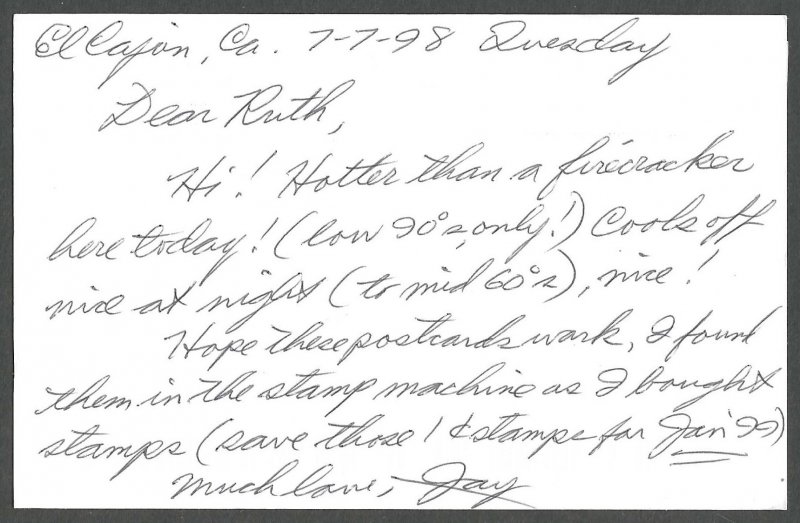 El Cajon, Ca. 7-7-98 Tuesday
Dear Ruth,
Hi! Hotter than a firecracker
here today! (low 90°s, only!) Cools off
nice at night (to mid 60°s), nice!
Hope these postcards work, I found
them in the stamp machine as I bought
stamps (save those 1¢ stamps for Jan '99)
Much love, Jay